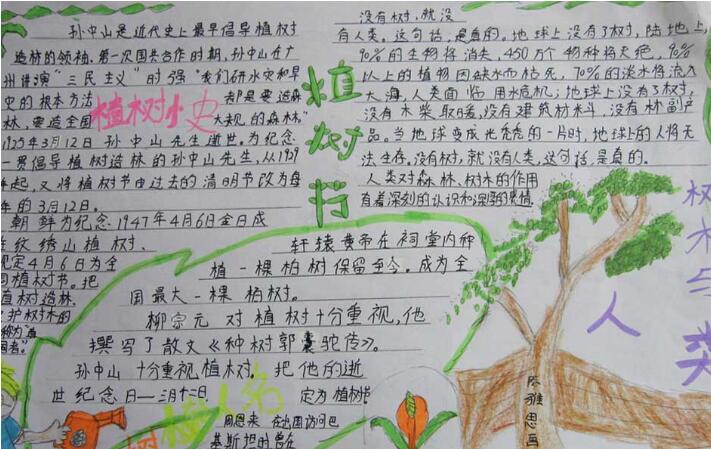 孙中山是近代史上最早倡导植树
造林的领袖.第一次国共合作时期,孙中山在广
州讲演"三民主义"时强"我们研水灾和旱
灾的根本方法 都是要造森
林,要造全国大规的森林."
1925年3月12日孙中山先生逝世.为纪念
一贯倡导植树造林的孙中山先生,从1929
年起,又将植树节由过去的清明节改为每
年的3月12日。
朝鲜为纪念1947年4月6日金日成
在纹绣山植树、
规定4月6日为全
国植树节。把
植树造林、
护树木的
植树小史
植树行
没有树,就没
有人类。这句话,是真的。地球上没有了树,陆地上,
90%的生物将消失,450万个物种将灭绝,90%
以上的植物因缺水而枯死,70%的淡水将流入
大海,人类面临用水危机;地球上没有了树,
没有木柴取暖,没有建筑材料,没有林副产
品。当地球变成光秃秃的一片时,地球上的人将无
法生存。没有树,就没有人类,这句话,是真的。
人类对森林、树木的作用
有着深刻的认识和深厚的感情
树木与人类
轩辕黄帝在祠堂内种
植一棵柏树保留至今。成为全
国最大一棵柏树。
柳宗元对植树十分重视,他
撰写了散文《种树郭橐驼传》。
孙中山十分重视植树.把他的逝
世纪念日—三月十二日. 定为植树节
周恩来在出国访问巴
基斯坦时曾在
植人名
树
陈雅思画